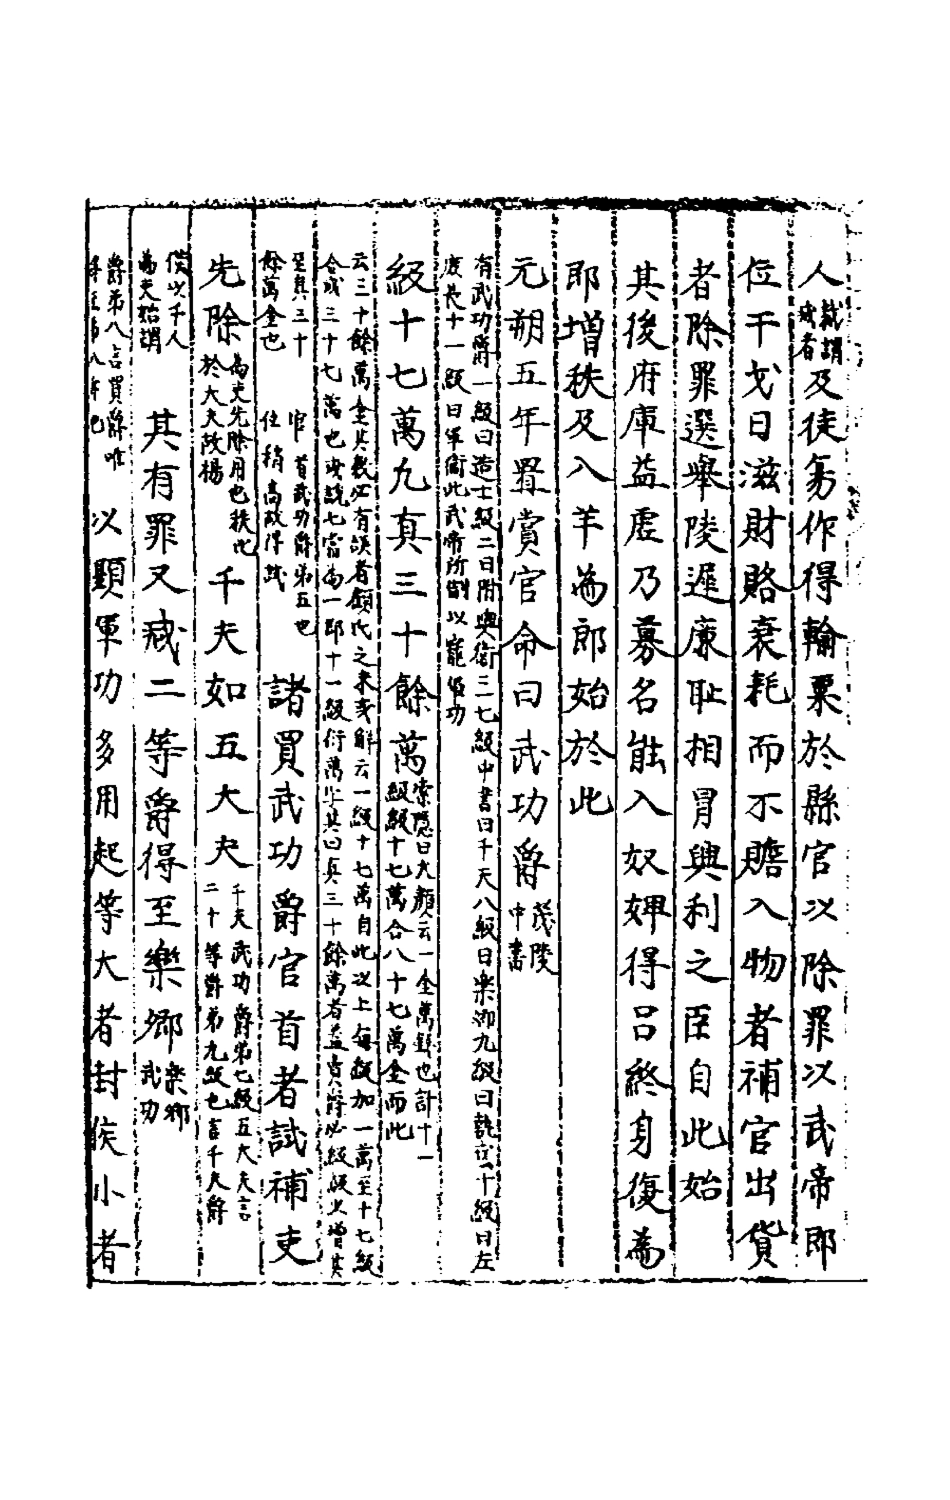 人裁謂裁者及徒复作得輸粟於縣官以除罪以武帝即
位干戈日滋財賂衰耗而不贍入物者補官出貨
者除罪選舉陵遲廉恥相冒興利之臣自此始
其後府庫益虛乃募名能入奴婢得吕終身復為
郎增秩及入羊為郎始於此
元朔五年置賞官命曰武功爵茂陵中書
有武功爵一級曰造士級二曰閑輿衛三七級中書曰千夫八級曰樂卿九級曰執戎十級曰左
庶長十一級曰軍衛此武帝所制以寵軍功
級十七萬九真三十餘萬索隱曰大顏云一金萬錢也計十一
級級十七萬合八十七萬金而此
云三十餘萬金其數必有誤者顧氏之未或解云一級十七萬自此以上每級加一萬至十七級
合成三十七萬也或説七當為一即十一級衍萬字其曰真三十餘萬者益賣爵必級級先增其
至真三十
餘萬金也
官首武功爵第五也
位稍高故得試
諸買武功爵官首者試補吏
先除為吏先除用也秩比
於大夫故楊
千夫如五大夫千夫武功爵第七級五大夫言
二十等爵第九級也言千夫爵
使以千人
為吏始謂
其有罪又減二等爵得至樂卿樂卿
武功
爵第八言買爵唯
得至第八爵也
以顯軍功多用起等大者封侯小者